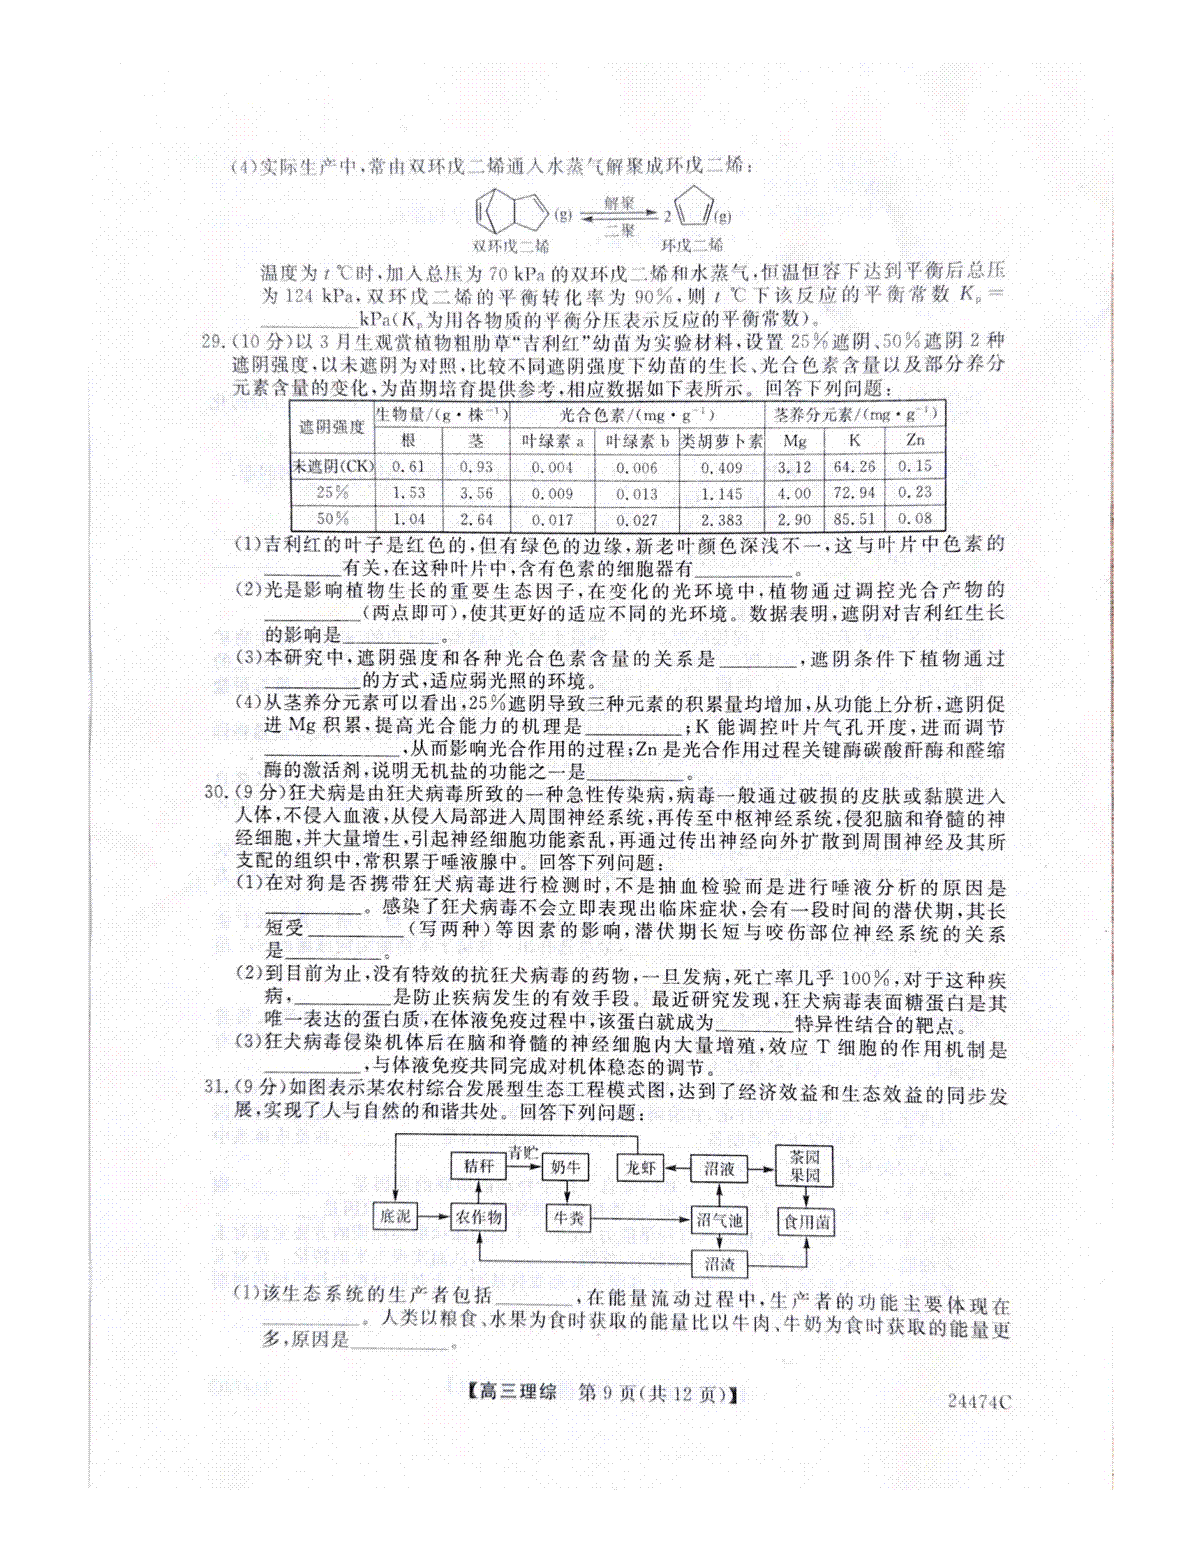 (4)实际生产中,常由双环戊二烯通入水蒸气解聚成环戊二烯:
(g) 解聚 二聚 2 (g)
双环戊二烯 环戊二烯
温度为 t ℃时,加入总压为 70 kPa 的双环戊二烯和水蒸气,恒温恒容下达到平衡后总压
为 124 kPa,双环戊二烯的平衡转化率为 90%,则 t ℃下该反应的平衡常数 Kp=
________kPa(Kp为用各物质的平衡分压表示反应的平衡常数)。
29.(10 分)以 3 月生观赏植物粗肋草“吉利红”幼苗为实验材料,设置 25%遮阴、50%遮阴 2 种
遮阴强度,以未遮阴为对照,比较不同遮阴强度下幼苗的生长、光合色素含量以及部分养分
元素含量的变化,为苗期培育提供参考,相应数据如下表所示。回答下列问题:
遮阴强度 生物量/(g·株⁻¹) 光合色素/(mg·g⁻¹) 茎养分元素/(mg·g⁻¹)
根 茎 叶绿素 a 叶绿素 b 类胡萝卜素 Mg K Zn
未遮阴(CK) 0.61 0.93 0.004 0.006 0.409 3.12 64.26 0.15
25% 1.53 3.56 0.009 0.013 1.145 4.00 72.94 0.23
50% 1.04 2.64 0.017 0.027 2.383 2.90 85.51 0.08
(1)吉利红的叶子是红色的,但有绿色的边缘,新老叶颜色深浅不一,这与叶片中色素的
________有关,在这种叶片中,含有色素的细胞器有________。
(2)光是影响植物生长的重要生态因子,在变化的光环境中,植物通过调控光合产物的
________(两点即可),使其更好的适应不同的光环境。数据表明,遮阴对吉利红生长
的影响是________。
(3)本研究中,遮阴强度和各种光合色素含量的关系是________,遮阴条件下植物通过
________的方式,适应弱光照的环境。
(4)从茎养分元素可以看出,25%遮阴导致三种元素的积累量均增加,从功能上分析,遮阴促
进 Mg 积累,提高光合能力的机理是________;K 能调控叶片气孔开度,进而调节
________,从而影响光合作用的过程;Zn 是光合作用过程关键酶碳酸酐酶和醛缩
酶的激活剂,说明无机盐的功能之一是________。
30.(9 分)狂犬病是由狂犬病毒所致的一种急性传染病,病毒一般通过破损的皮肤或黏膜进入
人体,不侵入血液,从侵入局部进入周围神经系统,再传至中枢神经系统,侵犯脑和脊髓的神
经细胞,并大量增生,引起神经细胞功能紊乱,再通过传出神经向外扩散到周围神经及其所
支配的组织中,常积累于唾液腺中。回答下列问题:
(1)在对狗是否携带狂犬病毒进行检测时,不是抽血检验而是进行唾液分析的原因是
________。感染了狂犬病毒不会立即表现出临床症状,会有一段时间的潜伏期,其长
短受________(写两种)等因素的影响,潜伏期长短与咬伤部位神经系统的关系
是________。
(2)到目前为止,没有特效的抗狂犬病毒的药物,一旦发病,死亡率几乎 100%,对于这种疾
病,________是防止疾病发生的有效手段。最近研究发现,狂犬病毒表面糖蛋白是其
唯一表达的蛋白质,在体液免疫过程中,该蛋白就成为________特异性结合的靶点。
(3)狂犬病毒侵染机体后在脑和脊髓的神经细胞内大量增殖,效应 T 细胞的作用机制是
________,与体液免疫共同完成对机体稳态的调节。
31.(9 分)如图表示某农村综合发展型生态工程模式图,达到了经济效益和生态效益的同步发
展,实现了人与自然的和谐共处。回答下列问题:
秸秆 青贮 奶牛 龙虾 沼液 茶园
果园
底泥 农作物 牛粪 沼气池 食用菌
沼渣
(1)该生态系统的生产者包括________,在能量流动过程中,生产者的功能主要体现在
________。人类以粮食、水果为食时获取的能量比以牛肉、牛奶为食时获取的能量更
多,原因是________。
【高三理综 第 9 页(共 12 页)】
24474C